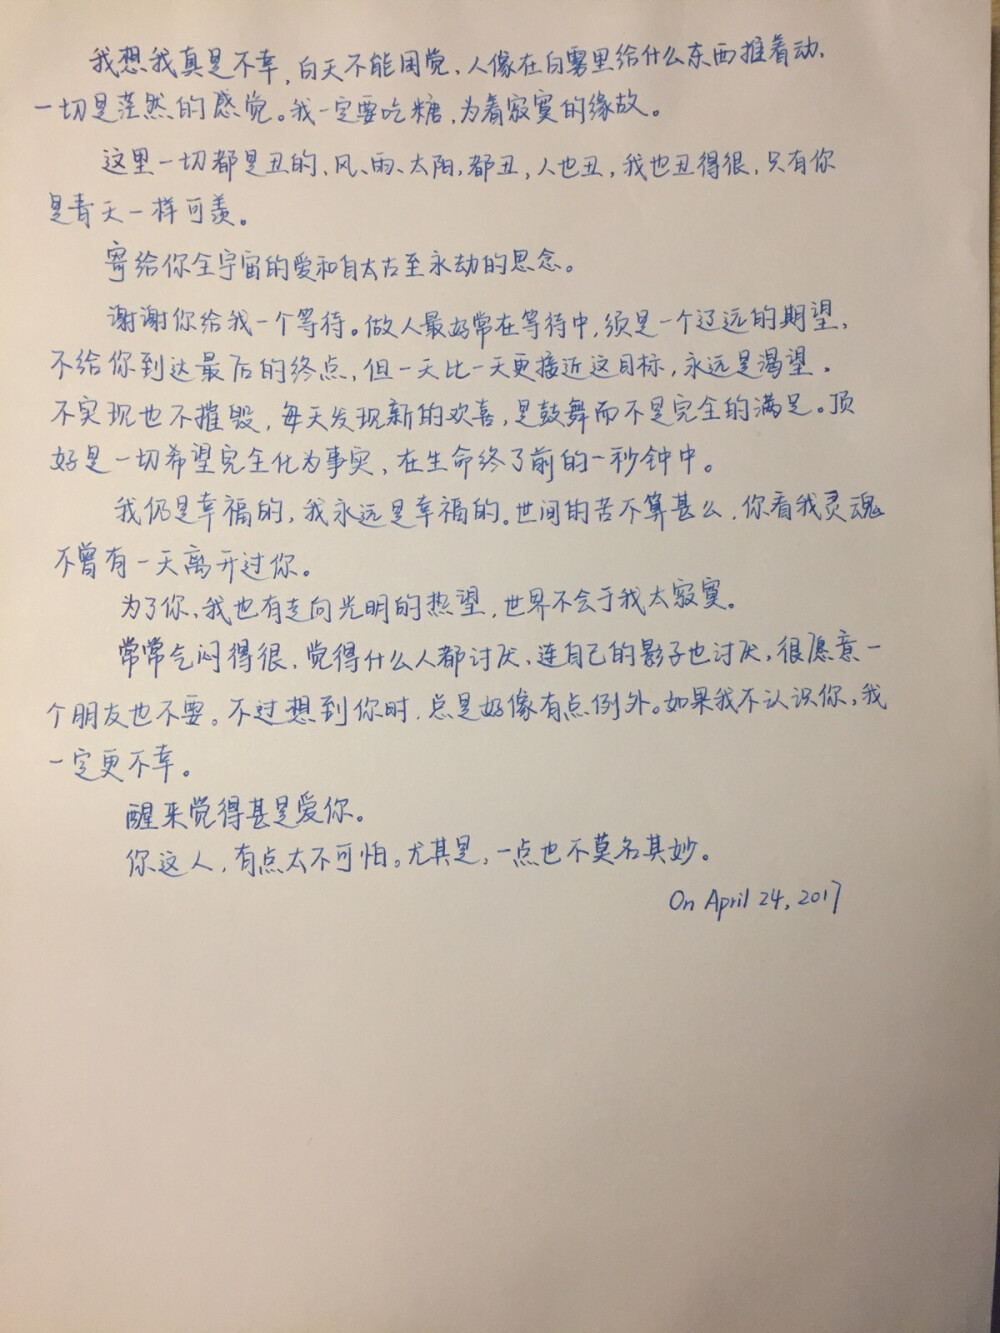 我想我真是不幸，白天不能困觉、人像在白雾里给什么东西推着动、
一切是茫然的感觉。我一定要吃糖，为着寂寞的缘故。
这里一切都是丑的、风、雨、太阳，都丑，人也丑，我也丑得很，只有你
是青天一样可羡。
寄给你全宇宙的爱和自太古至永劫的思念。
谢谢你给我一个等待。做人最好常在等待中，须是一个辽远的期望、
不给你到达最后的终点，但一天比一天更接近这目标，永远是渴望。
不实现也不摧毁，每天发现新的欢喜，是鼓舞而不是完全的满足。顶
好是一切希望完全化为事实，在生命终了前的一秒钟中。
我仍是幸福的，我永远是幸福的。世间的苦不算甚么，你看我灵魂
不曾有一天离开过你。
为了你、我也有走向光明的热望，世界不会于我太寂寞。
常常气闷得很、觉得什么人都讨厌、连自己的影子也讨厌，很愿意一
个朋友也不要。不过想到你时，总是好像有点例外。如果我不认识你，我
一定更不幸。
醒来觉得甚是爱你。
你这人，有点太不可怕。尤其是，一点也不莫名其妙。
On April 24, 2017